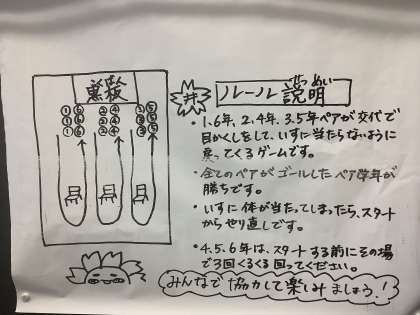 黒板
①⑥ ②④ ③⑤
①⑥ ②④ ③⑤
①⑥ ②④ ③⑤
せつめい
ルール説明
・1.6年、2.4年、3.5年ペアが交代で
目かくしをして、いすに当たらないように
戻ってくるゲームです。
・全てのペアがゴールしたペア学年が
勝ちです。
・いすに体が当たってしまったら、スタート
からやり直しです。
・4.5.6年は、スタートする前にその場
で3回くるくる回ってください。
みんなで協力して楽しみましょう!